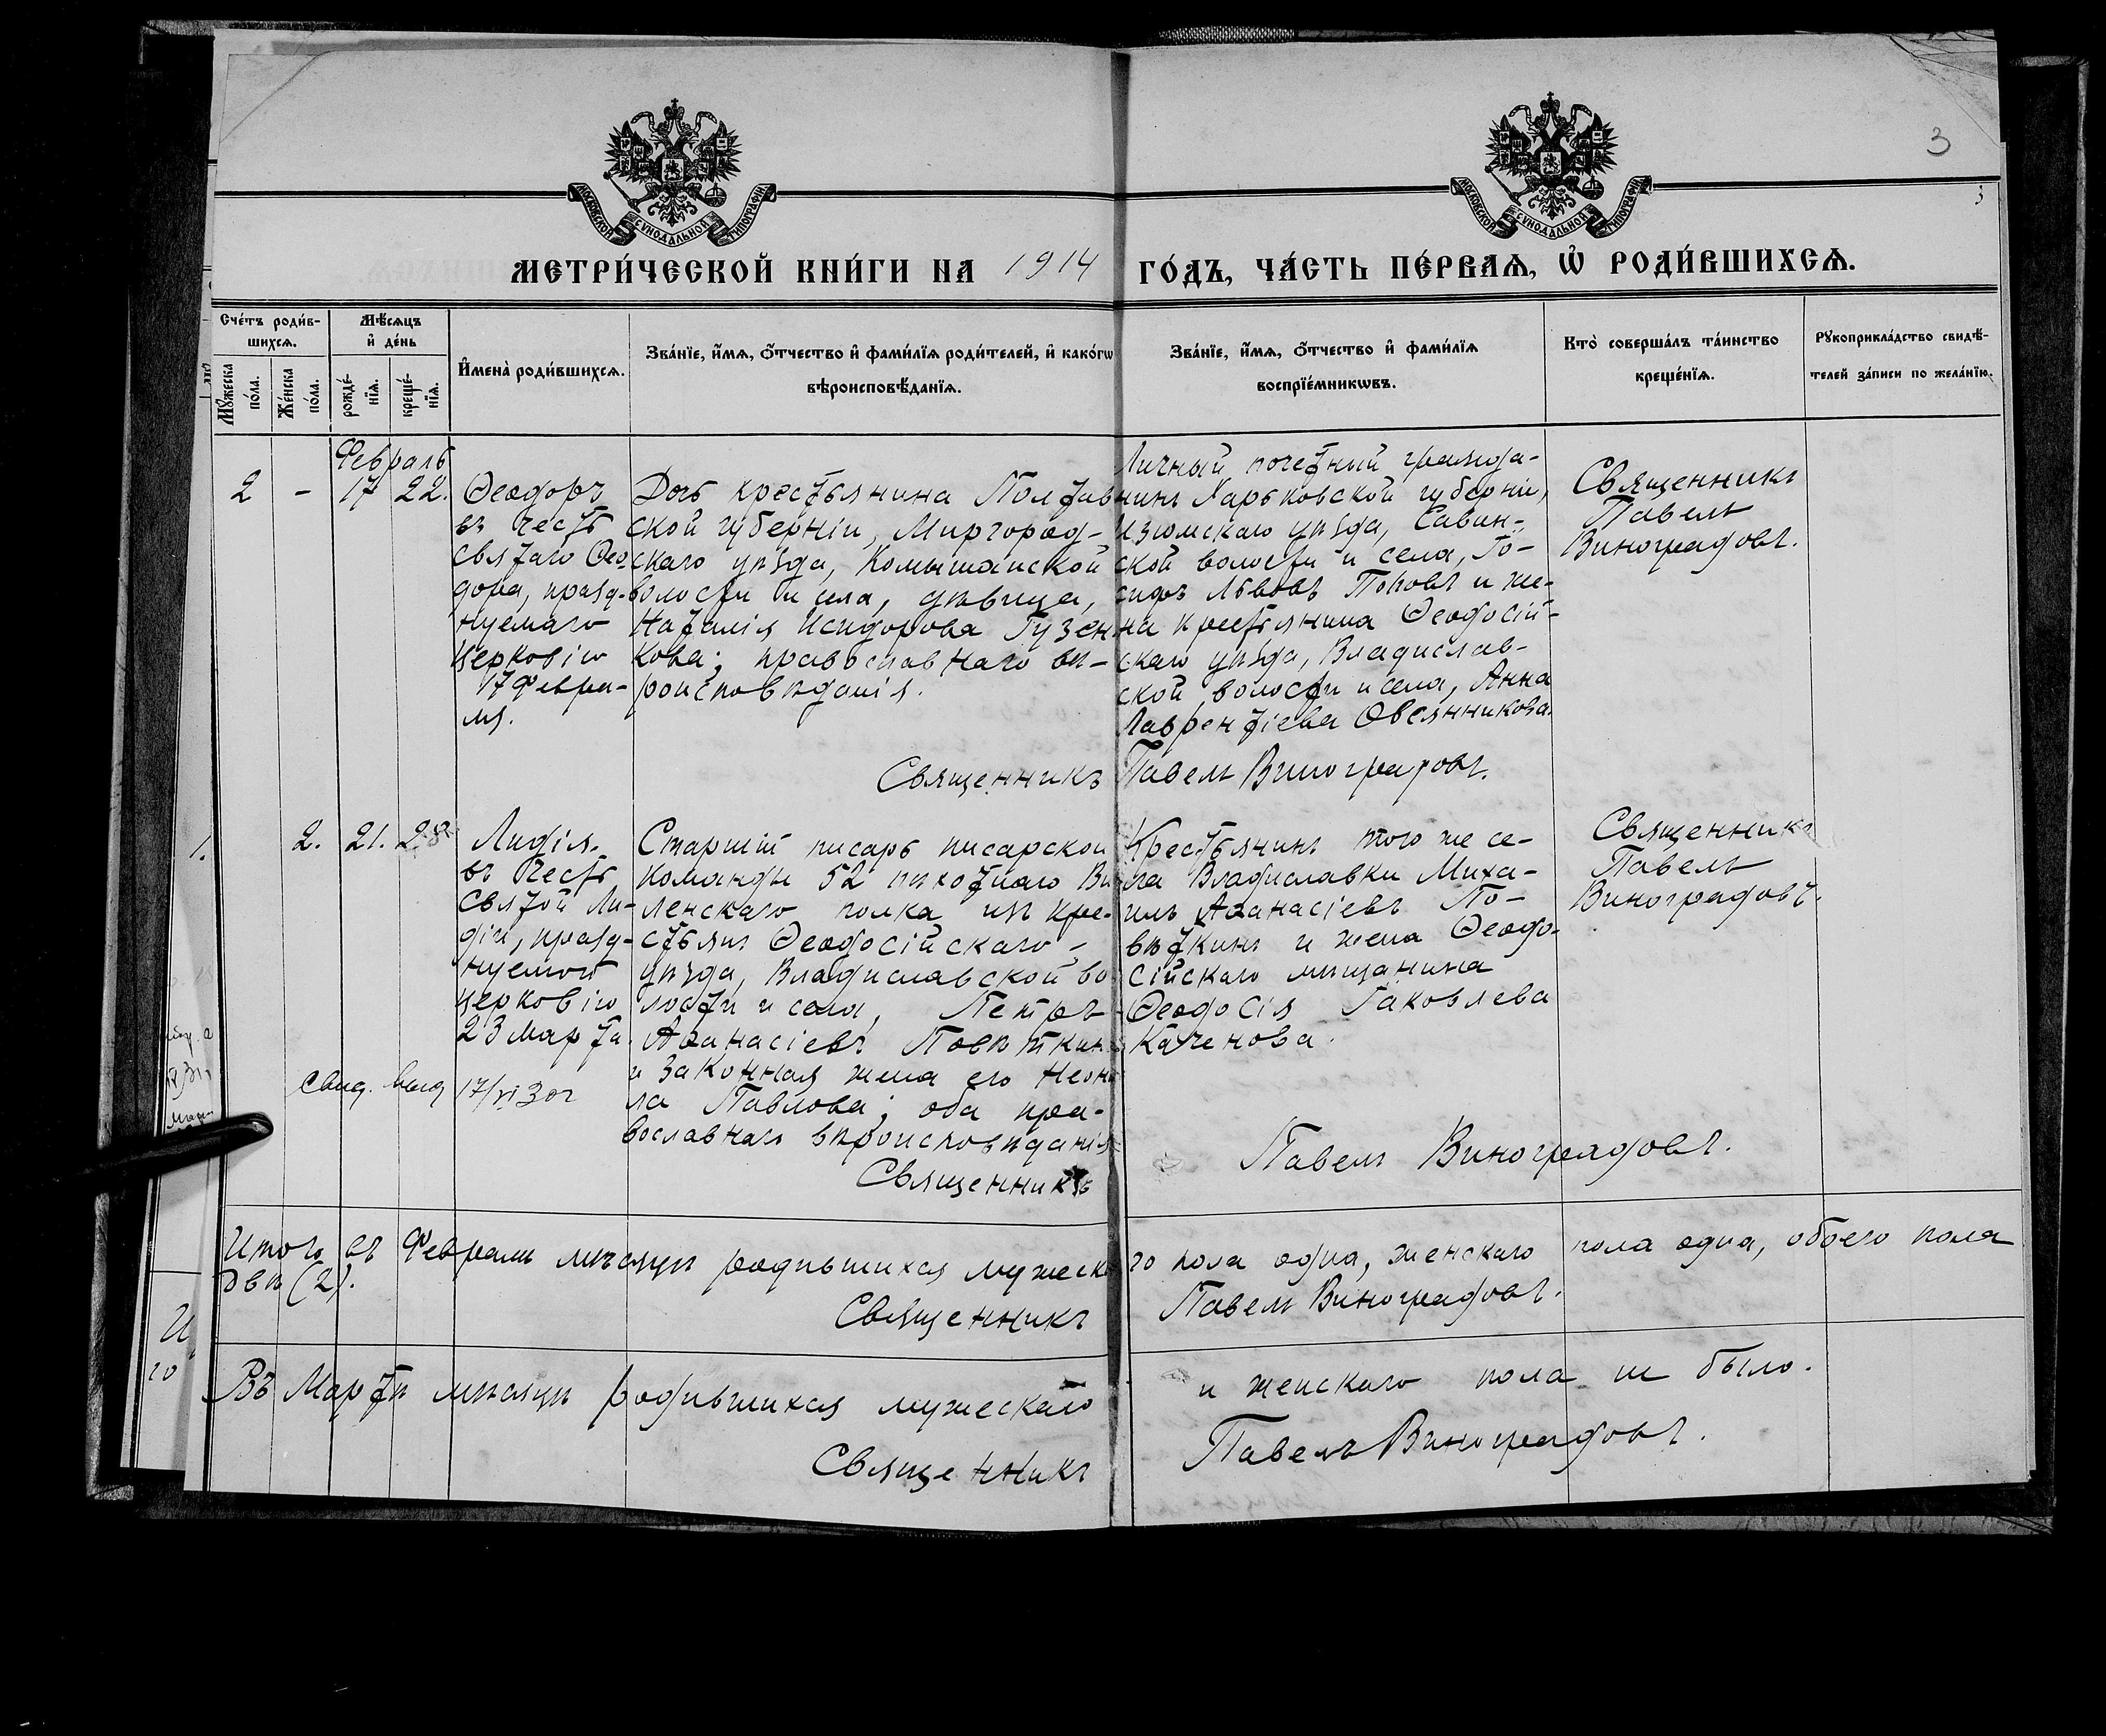 3
3
МОСКОВСКОЙ СѴНОДАЛЬНОЙ ТИПОГРАФІИ
МОСКОВСКОЙ СѴНОДАЛЬНОЙ ТИПОГРАФІИ
МЕТРИ́ЧЕСКОЙ КНИ́ГИ НА 1914 ГО́ДЪ, ЧА́СТЬ ПЕ́РВАѦ, Ѡ҆ РОДИ́ВШИХСѦ.
Сче́тъ роди́в-
шихсѧ.
Мꙋ́жеска по́ла.
Же́нска по́ла.
Мѣ́сѧцъ
и҆ де́нь
рожде́-
нїѧ.
креще́-
нїѧ.
И҆мена̀ роди́вшихсѧ.
Зва́нїе, и҆́мѧ, ѻ҆́тчество и҆ фами́лїѧ роди́телей, и҆ како́гѡ
вѣроисповѣ́данїѧ.
Зва́нїе, и҆́мѧ, ѻ҆́тчество и҆ фами́лїѧ
воспрїе́мникѡвъ.
Кто̀ соверша́лъ та́инство
креще́нїѧ.
Рꙋкоприкла́дство свидѣ́-
телей за́писи по жела́нїю.
Февраль
2 - 17 22.
Ѳеодоръ
въ честь
святаго Ѳео
дора, празд-
нуемаго
церковію
17 Февра-
ля.
Дочь крестьянина Полтав
ской губерніи, Миргород-
скаго уѣзда, Комышанской
волости и села, дѣвица,
Наталія Исидорова Гузен
кова; православнаго вѣ-
роисповѣданія.
Личный почетный гражда-
нинъ Харьковской губерніи,
Изюмскаго уѣзда, Савин-
ской волости и села, Іо-
сифъ Львовъ Поповъ и же-
на крестьянина Ѳеодосій-
скаго уѣзда, Владислав-
ской волости и села, Анна
Лаврентіева Овсянникова.
Священникъ
Павелъ
Виноградовъ.
Священникъ Павелъ Виноградовъ.
1.
2. 21. 28
Лидія.
въ честь
Святой Ли-
діи, празд-
нуемой
церковію
23 марта
Старшій писарь писарской
команды 52 пѣхотнаго Ви
ленскаго полка изъ кре-
стьянъ Ѳеодосійскаго
уѣзда, Владиславской во
лости и села, Петръ
Аѳанасіевъ Повѣткинъ
и законная жена его Неони
ла Павлова; оба пра-
вославнаго вѣроисповѣданія
Крестьянинъ того же се-
ла Владиславки Миха-
илъ Аѳанасіевъ По-
вѣткинъ и жена Ѳеодо-
сійскаго мѣщанина
Ѳеодосія Іаковлева
Каченова.
Священникъ
Павелъ
Виноградовъ.
Свид. выд 17/VI 30г
Священникъ Павелъ Виноградовъ.
Итого въ Февралѣ мѣсяцѣ родившихся мужеска го пола одна, женскаго пола одна, обоего пола
двѣ (2).
Священникъ Павелъ Виноградовъ.
Въ Мартѣ мѣсяцѣ родившихся мужескаго и женскаго пола не было.
Священникъ Павелъ Виноградовъ.